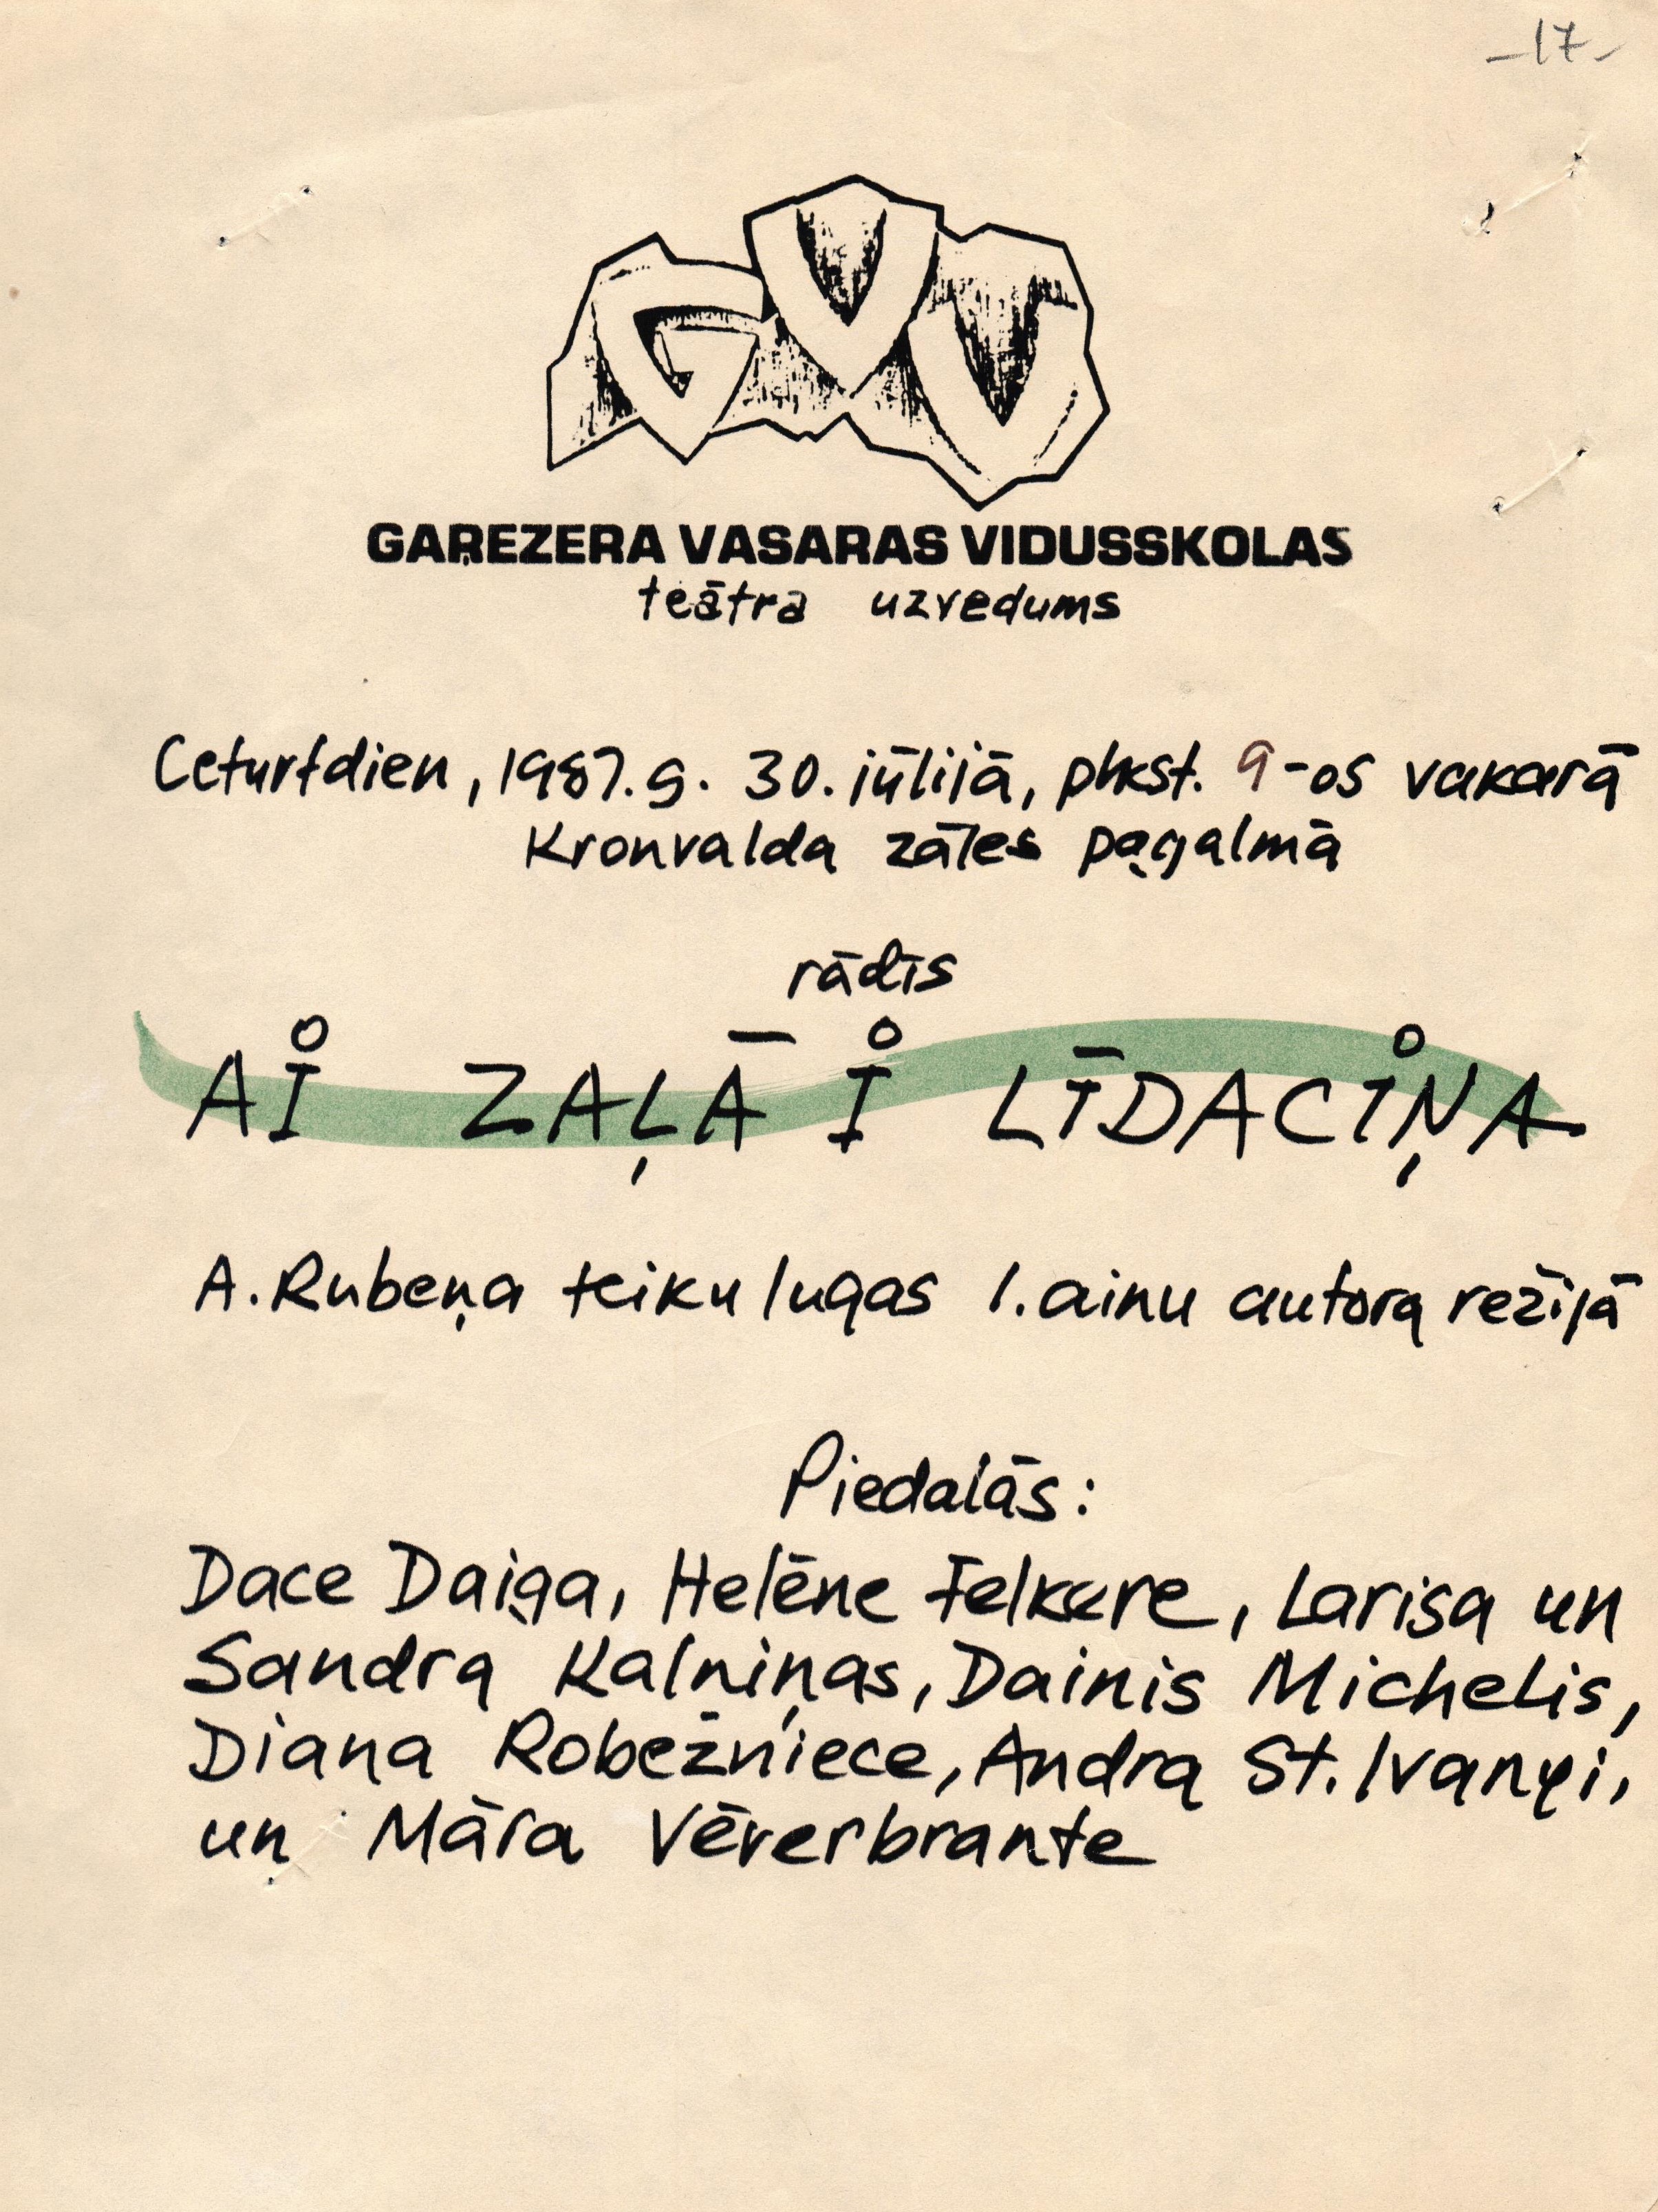 -17-
GVV
GAŖEZERA VASARAS VIDUSSKOLAS
teātra uzvedums
Ceturtdien, 1987.g. 30. jūlijā, plkst. 9-os vakarā
Kronvalda zāles pagalmā
rādīs
AI ZAĻĀ I LĪDACIŅA
A. Rubeņa teiku lugas 1. ainu autora režijā
Piedalās:
Dace Daiga, Helēne Felkere, Larisa un
Sandra Kalniņas, Dainis Michelis,
Diana Robežniece, Andra St. Ivanyi,
un Māra Vēverbrante